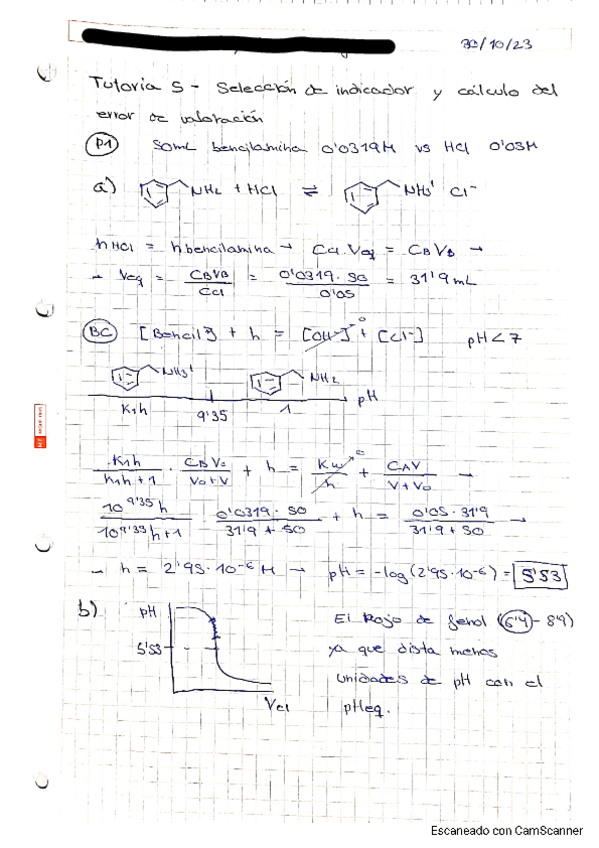 30/10/23
Tutoria 5 - Selección de indicador y cálculo del
error de valoración
P1 50mL bencilamina 0'0319M vs HCl 0'05M
a) NH2 + HCl ⇌ NH3+ Cl-
nHCl = nbencilamina → CCl · Veq = CBVB →
→ Veq = CBVB / CCl = 0'0319 · 50 / 0'05 = 31'9 mL
BC [Bencil+] + h = [OH-]→0 + [Cl-] pH < 7
NH3+ NH2
K1h 9'35 1 pH
K1h / K1h + 1 · CBV0 / V0+V + h = Kw / h →0 + CAV / V+V0 →
10^9'35 h / 10^9'35 h+1 · 0'0319 · 50 / 31'9 + 50 + h = 0'05 · 31'9 / 31'9 + 50 →
→ h = 2'95·10^-6 M → pH = -log(2'95·10^-6) = 5'53
b) pH El Rojo de fenol (6'4 - 8'9)
5'53 ya que dista menos
unidades de pH con el
VCl pHeq.
Escaneado con CamScanner